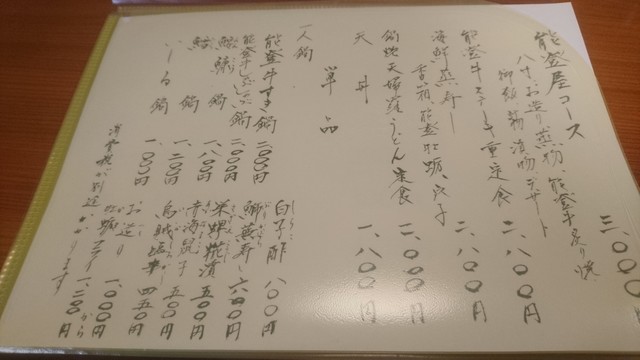 能登屋コース 三、〇〇〇円
八寸、お造り、蒸物、能登牛炙り焼
御飯物、漬物、デザート
能登牛ステーキ重定食 二、八〇〇円
海鮮蒸寿し 一、八〇〇円
香箱、能登牡蠣、穴子
鍋焼天婦羅うどん定食 二、〇〇〇円
天丼 一、八〇〇円
単品
一人鍋
能登牛すき鍋 二、〇〇〇円
能登牛しゃぶしゃぶ鍋 二、〇〇〇円
鍋 一、八〇〇円
鍋 一、二〇〇円
いしる鍋 一、〇〇〇円
白子酢 八〇〇円
鰤蒸寿し 六〇〇円
糀漬 五〇〇円
五〇〇円
烏賊塩辛 四五〇円
お造り 一、〇〇〇円から
牡蠣フライ 一、二〇〇円
消費税が別途かかります